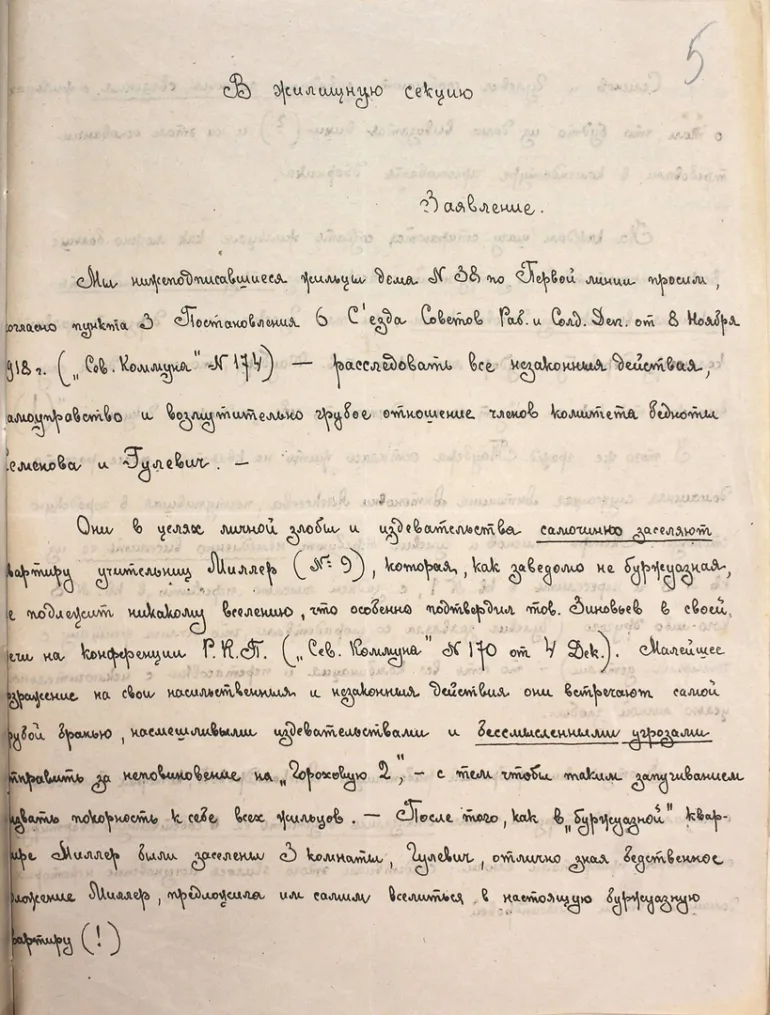 5
В жилищную секцию
Заявление.
Мы нижеподписавшиеся жильцы дома N 38 по Первой линии просим,
огласно пункта 3 Постановления 6 С'езда Советов Раб. и Солд. Деп. от 8 Ноября
918 г. („Сов. Коммуна" N 174) — расследовать все незаконныя действая,
амоуправство и возмутительно грубое отношение членов комитета бедноты
еменова и Гулевич. —
Они в целях личной злобы и издевательства самочинно заселяют
вартиру учительниц Миллер (№ 9), которая, как заведомо не буржуазная,
е подлежит никакому вселению, что особенно подтвердил тов. Зиновьев в своей
ечи на конференции Р.К.П. („Сев. Коммуна" N 170 от 4 Дек.). Малейшее
зражение на свои насильственныя и незаконныя действия они встречают самой
рубой бранью, насмешливыми издевательствами и бессмысленными угрозами
тправить за неповиновение на „Гороховую 2", — с тем чтобы таким запугиванием
звать покорность к себе всех жильцов. — После того, как в „буржуазной" квар-
ире Миллер были заселены 3 комнаты, Гулевич, отлично зная бедственное
ложение Миллер, предложила им самим вселиться в настоящую буржуазную
вартиру (!)